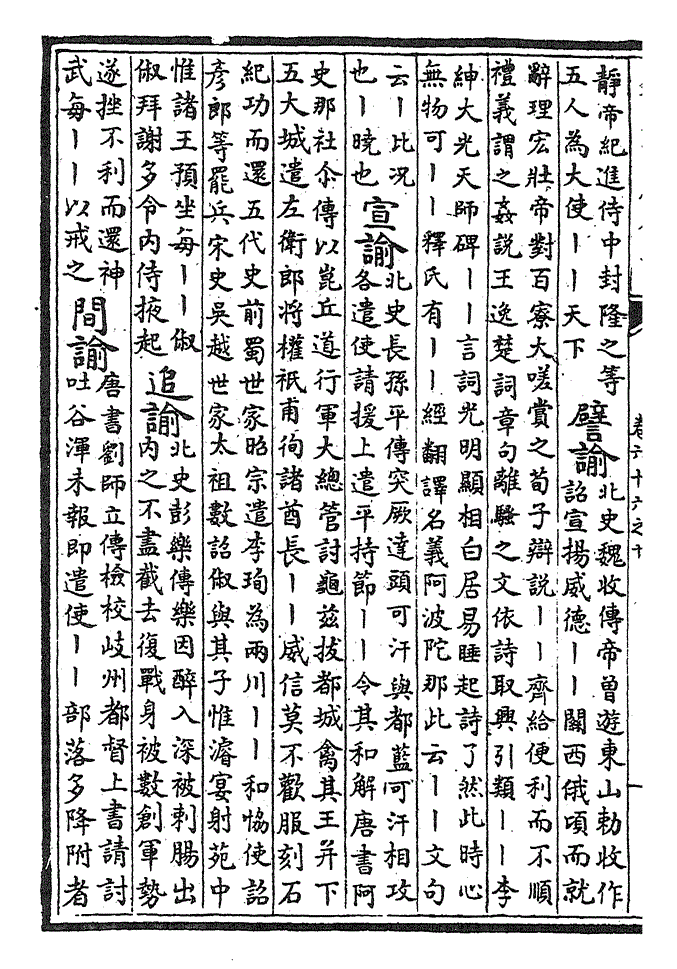 靜帝紀進侍中封隆之等
五人為大使丨丨天下
譬諭
北史魏收傳帝曾遊東山勅收作
詔宣揚威德丨丨關西俄頃而就
辭理宏壯帝對百寮大嗟賞之荀子辯說丨丨齊給便利而不順
禮義謂之姦説王逸楚詞章句離騷之文依詩取興引類丨丨李
紳大光天師碑丨丨言詞光明顯相白居易睡起詩了然此時心
無物可丨丨釋氏有丨丨經翻譯名義阿波陀那此云丨丨文句
云丨比况
也丨曉也
宣諭
北史長孫平傳突厥達頭可汗與都藍可汗相攻
各遣使請援上遣平持節丨丨令其和解唐書阿
史那社尒傳以崑丘道行軍大總管討龜茲拔都城禽其王并下
五大城遣左衛郎將權祇甫徇諸酋長丨丨威信莫不歡服刻石
紀功而還五代史前蜀世家昭宗遣李珣為兩川丨丨和恊使詔
彥郎等罷兵宋史吳越世家太祖數詔俶與其子惟濬宴射苑中
惟諸王預坐每丨丨俶
俶拜謝多令內侍掖起
追諭
北史彭樂傳樂因醉入深被刺腸出
內之不盡截去復戰身被數創軍勢
遂挫不利而還神
武每丨丨以戒之
間諭
唐書劉師立傳檢校岐州都督上書請討
吐谷渾未報即遣使丨丨部落多降附者